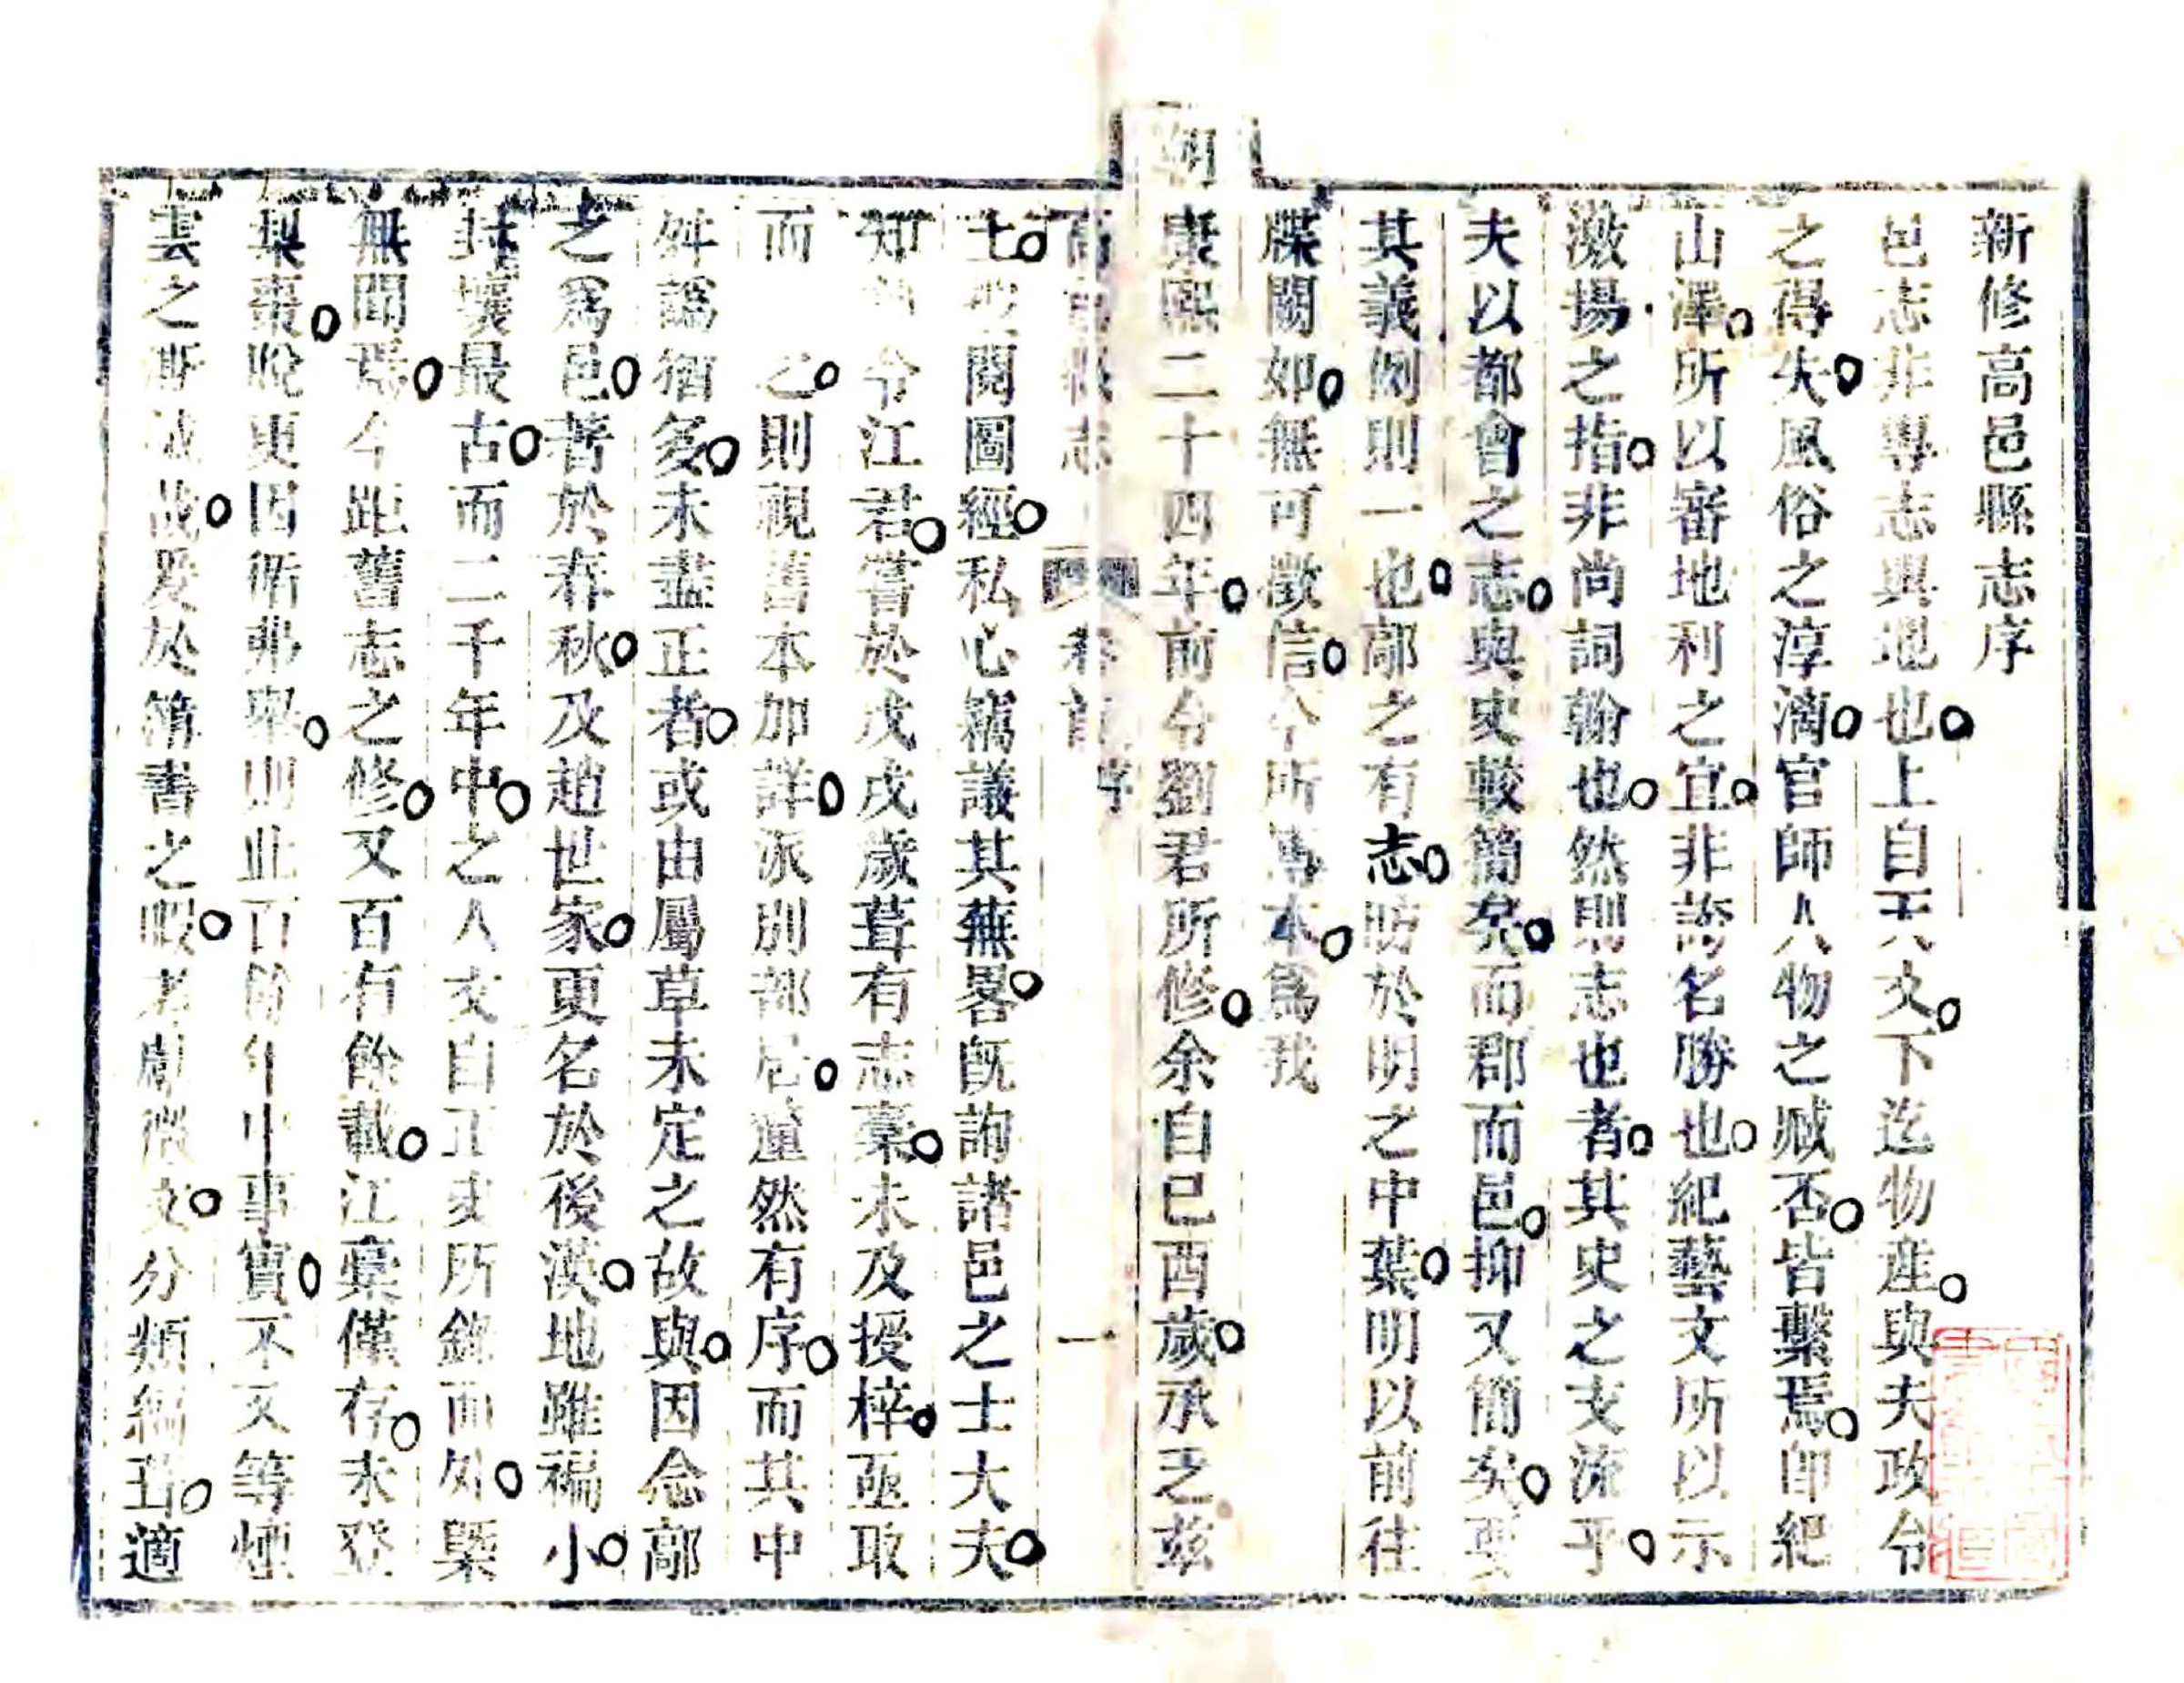 新修高邑縣志序
邑志非專志輿地也上自天文下迄物産與夫政令
之得失風俗之淳漓官師人物之臧否皆繫焉卽紀
山澤所以審地利之宜非誇名勝也紀藝文所以示
激揚之指非尚詞翰也然則志也者其史之支流乎
夫以都會之志與史較簡矣而郡而邑抑又簡矣要
其義例則一也鄗之有志昉於明之中葉明以前往
牒闕如無可徵信今所專本爲我
朝
康熙二十四年前令劉君所修余自己酉歲承乏茲
高邑縣志 卷首 序 一
土 閱圖經私心竊議其蕪畧旣詢諸邑之士大夫
知 令江君嘗於戊戌歲葺有志藁未及授梓亟取
而 之則視舊本加詳派別部居瞳然有序而其中
舛譌猶多未盡正者或由屬草未定之故與因念鄗
之爲邑著於春秋及趙世家更名於後漢地雖褊小
封壤最古而二千年中之人文自正史所錄而外槩
無聞焉今距舊志之修又百有餘載江藁僅存未登
棃棗脫更因循弗舉則此百餘年中事實不又等煙
雲之漸滅哉爰於簿書之暇考獻徵文分類編葺適